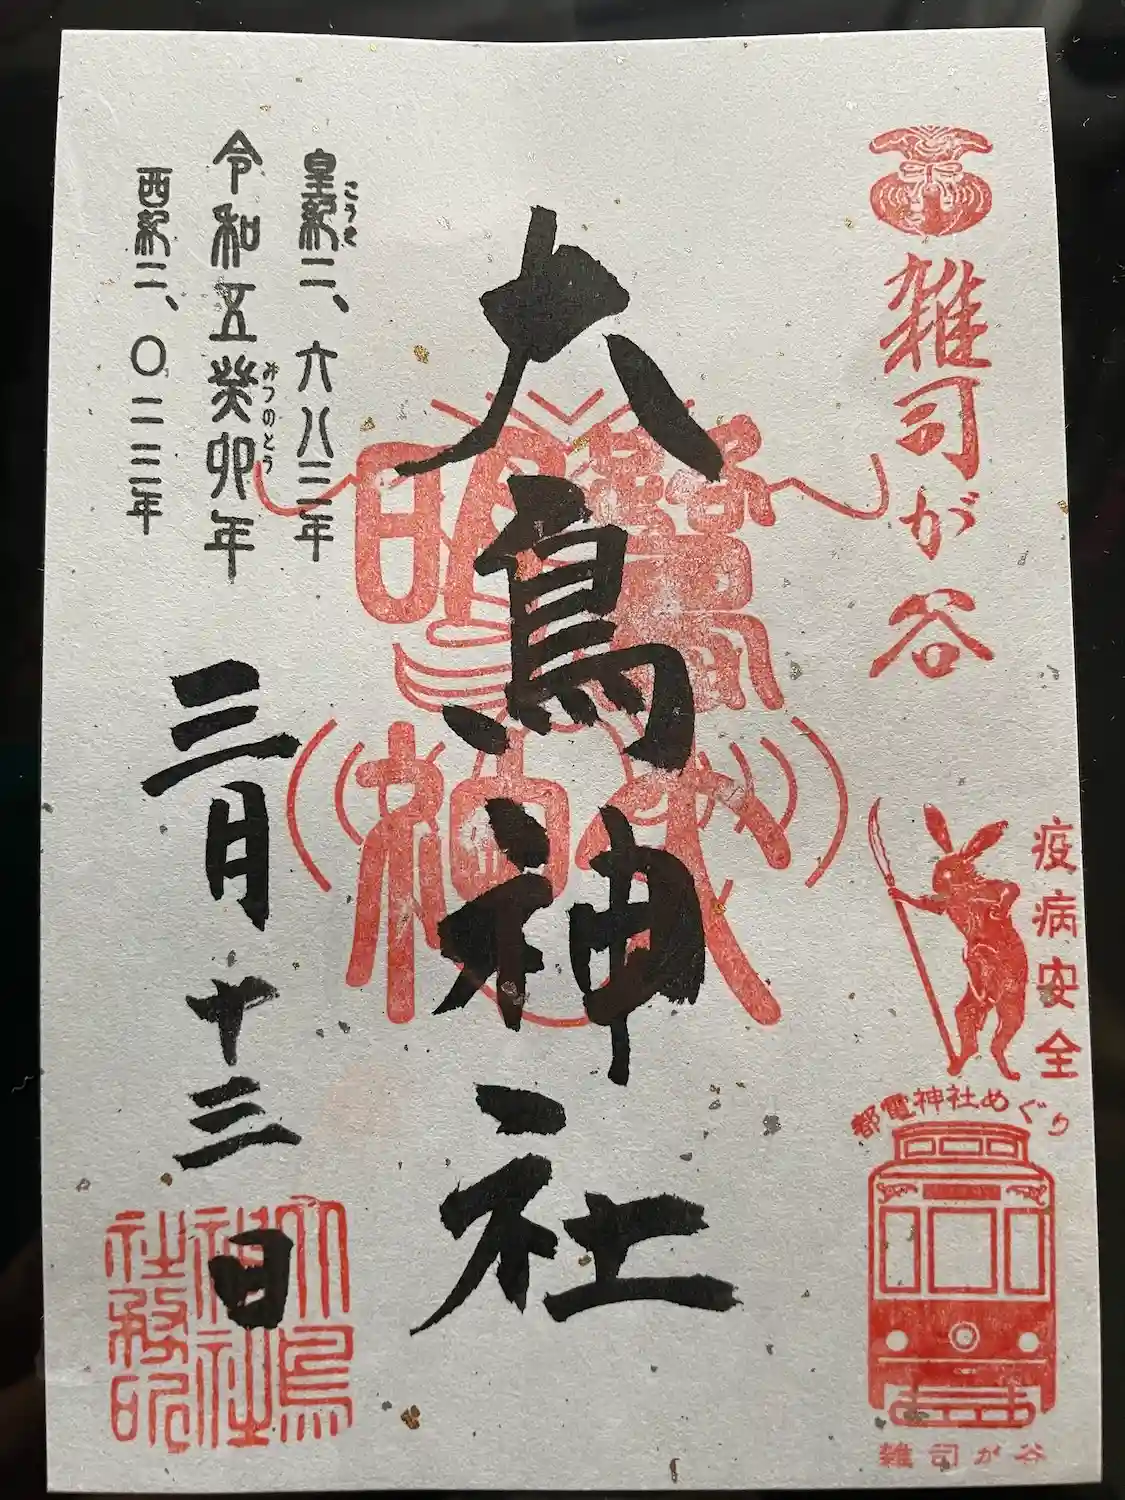 雑司が谷
疫病安全
都電神社めぐり
雑司が谷
大鳥神社
皇紀二、六八三年
こうき
令和五癸卯年
みずのとう
西紀二、〇二三年
三月十三日
大鳥
神社
社務印